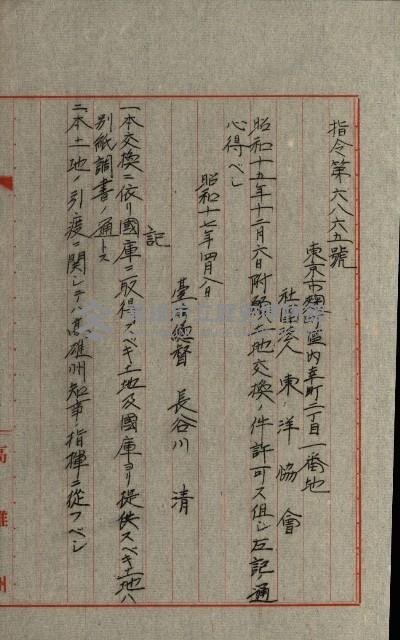 指令第六八六五號
東京市麹町區內幸町二丁目一番地
社團法人 東洋協會
昭和十五年十二月六日附願土地交換ノ件許可ス但シ左記ノ通
心得ベシ
昭和十七年四月八日
臺灣總督 長谷川 清
記
一、本交換ニ依リ國庫ニ取得スベキ土地及國庫ヨリ提供スベキ土地ハ
別紙調書ノ通トス
二、本土地ノ引渡ニ關シテハ高雄州知事ノ指揮ニ從フベシ
高雄州